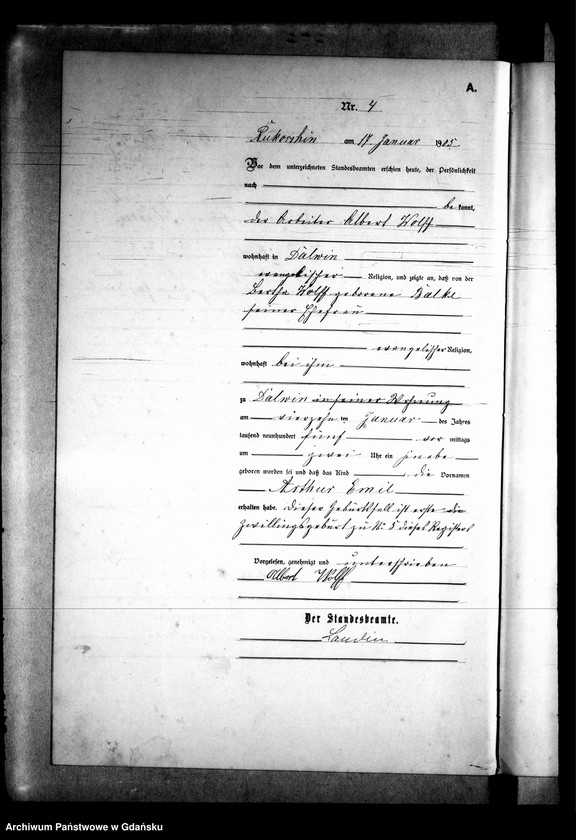 A.
Nr. 4
Rukoschin am 17 Januar 1905
Vor dem unterzeichneten Standesbeamten erschien heute, der Persönlichkeit
nach
bekannt,
der Arbeiter Albert Wolff
wohnhaft in Dalwin
evangelischer Religion, und zeigte an, daß von der
Bertha Wolff geborene Balke
seiner Ehefrau
evangelischer Religion,
wohnhaft bei ihm
zu Dalwin in seiner Wohnung
am vierzehn ten Januar des Jahres
tausend neunhundert fünf vor mittags
um zwei Uhr ein Knabe
geboren worden sei und daß das Kind die Vornamen
Arthur Emil
erhalten habe. Dieser Geburtsfall ist erste die
Zwillingsgeburt zu N: 5 dieses Registers
Vorgelesen, genehmigt und unterschrieben
Albert Wolff
Der Standesbeamte.
Archiwum Państwowe w Gdańsku